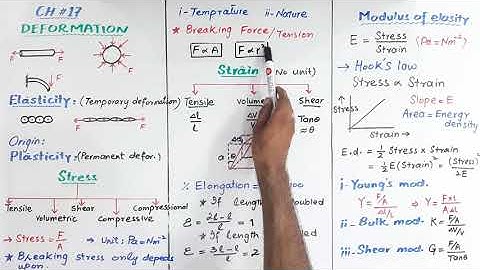 CH # 17
DEFORMATION
Elasticity: (Temporary deformation)
Origin:
Plasticity: (Permanent defor.)
Stress
Tensile Shear Compressional
Volumetric Compressive
→ Stress = F/A → Unit: Pa = Nm⁻²
★ Breaking stress only depends upon
i- Temprature ii- Nature
★ Breaking Force/Tension
F ∝ A F ∝ r²
Strain (No unit)
Tensile volume Shear
Δl/l Tanθ
≈ θ
a
% Elongation
★ If length doubled
ε = 2l - l / l = 1
★ If length
ε = 3l - l / l = 2
Modulus of elasity
E = Stress/Strain (Pa = Nm⁻²)
→ Hook's law
Stress ∝ Strain
Stress →
Slope = E
Area = Energy density
Strain →
E.d. = 1/2 Stress × Strain
= 1/2 E(Strain)² = (Stress)²/2E
i- Young's mod.
Y = F/A / Δl/l Y = F×l / A×Δl
ii- Bulk mod. K = F/A / ΔV/V
iii- Shear mod. G = F/A / Tanθ